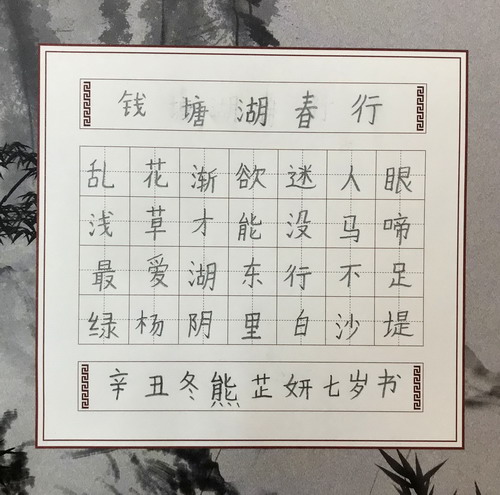 钱塘湖春行
乱花渐欲迷人眼
浅草才能没马啼
最爱湖东行不足
绿杨阴里白沙堤
辛丑冬熊芷妍七岁书